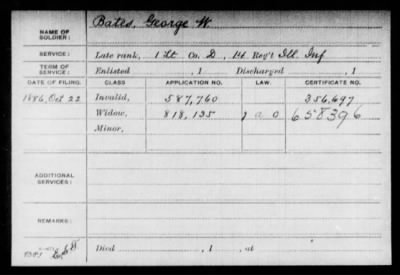 NAME OF SOLDIER: Bates, George W.
SERVICE: Late rank, 1 Lt Co. D, 14 Reg't Ill. Inf
TERM OF SERVICE: Enlisted , 1 Discharged , 1
DATE OF FILING. CLASS APPLICATION NO. LAW. CERTIFICATE NO.
1886, Oct 22 Invalid, 587,760 356,697
Widow, 818,135 658396
Minor,
ADDITIONAL SERVICES:
REMARKS:
Died , 1 , at